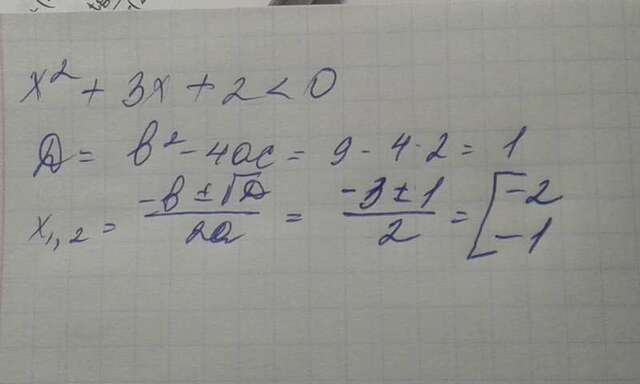 x² + 3x + 2 < 0
D = b² - 4ac = 9 - 4·2 = 1
x₁,₂ = (-b ± √D)/2a = (-3 ± 1)/2 = [-2
-1